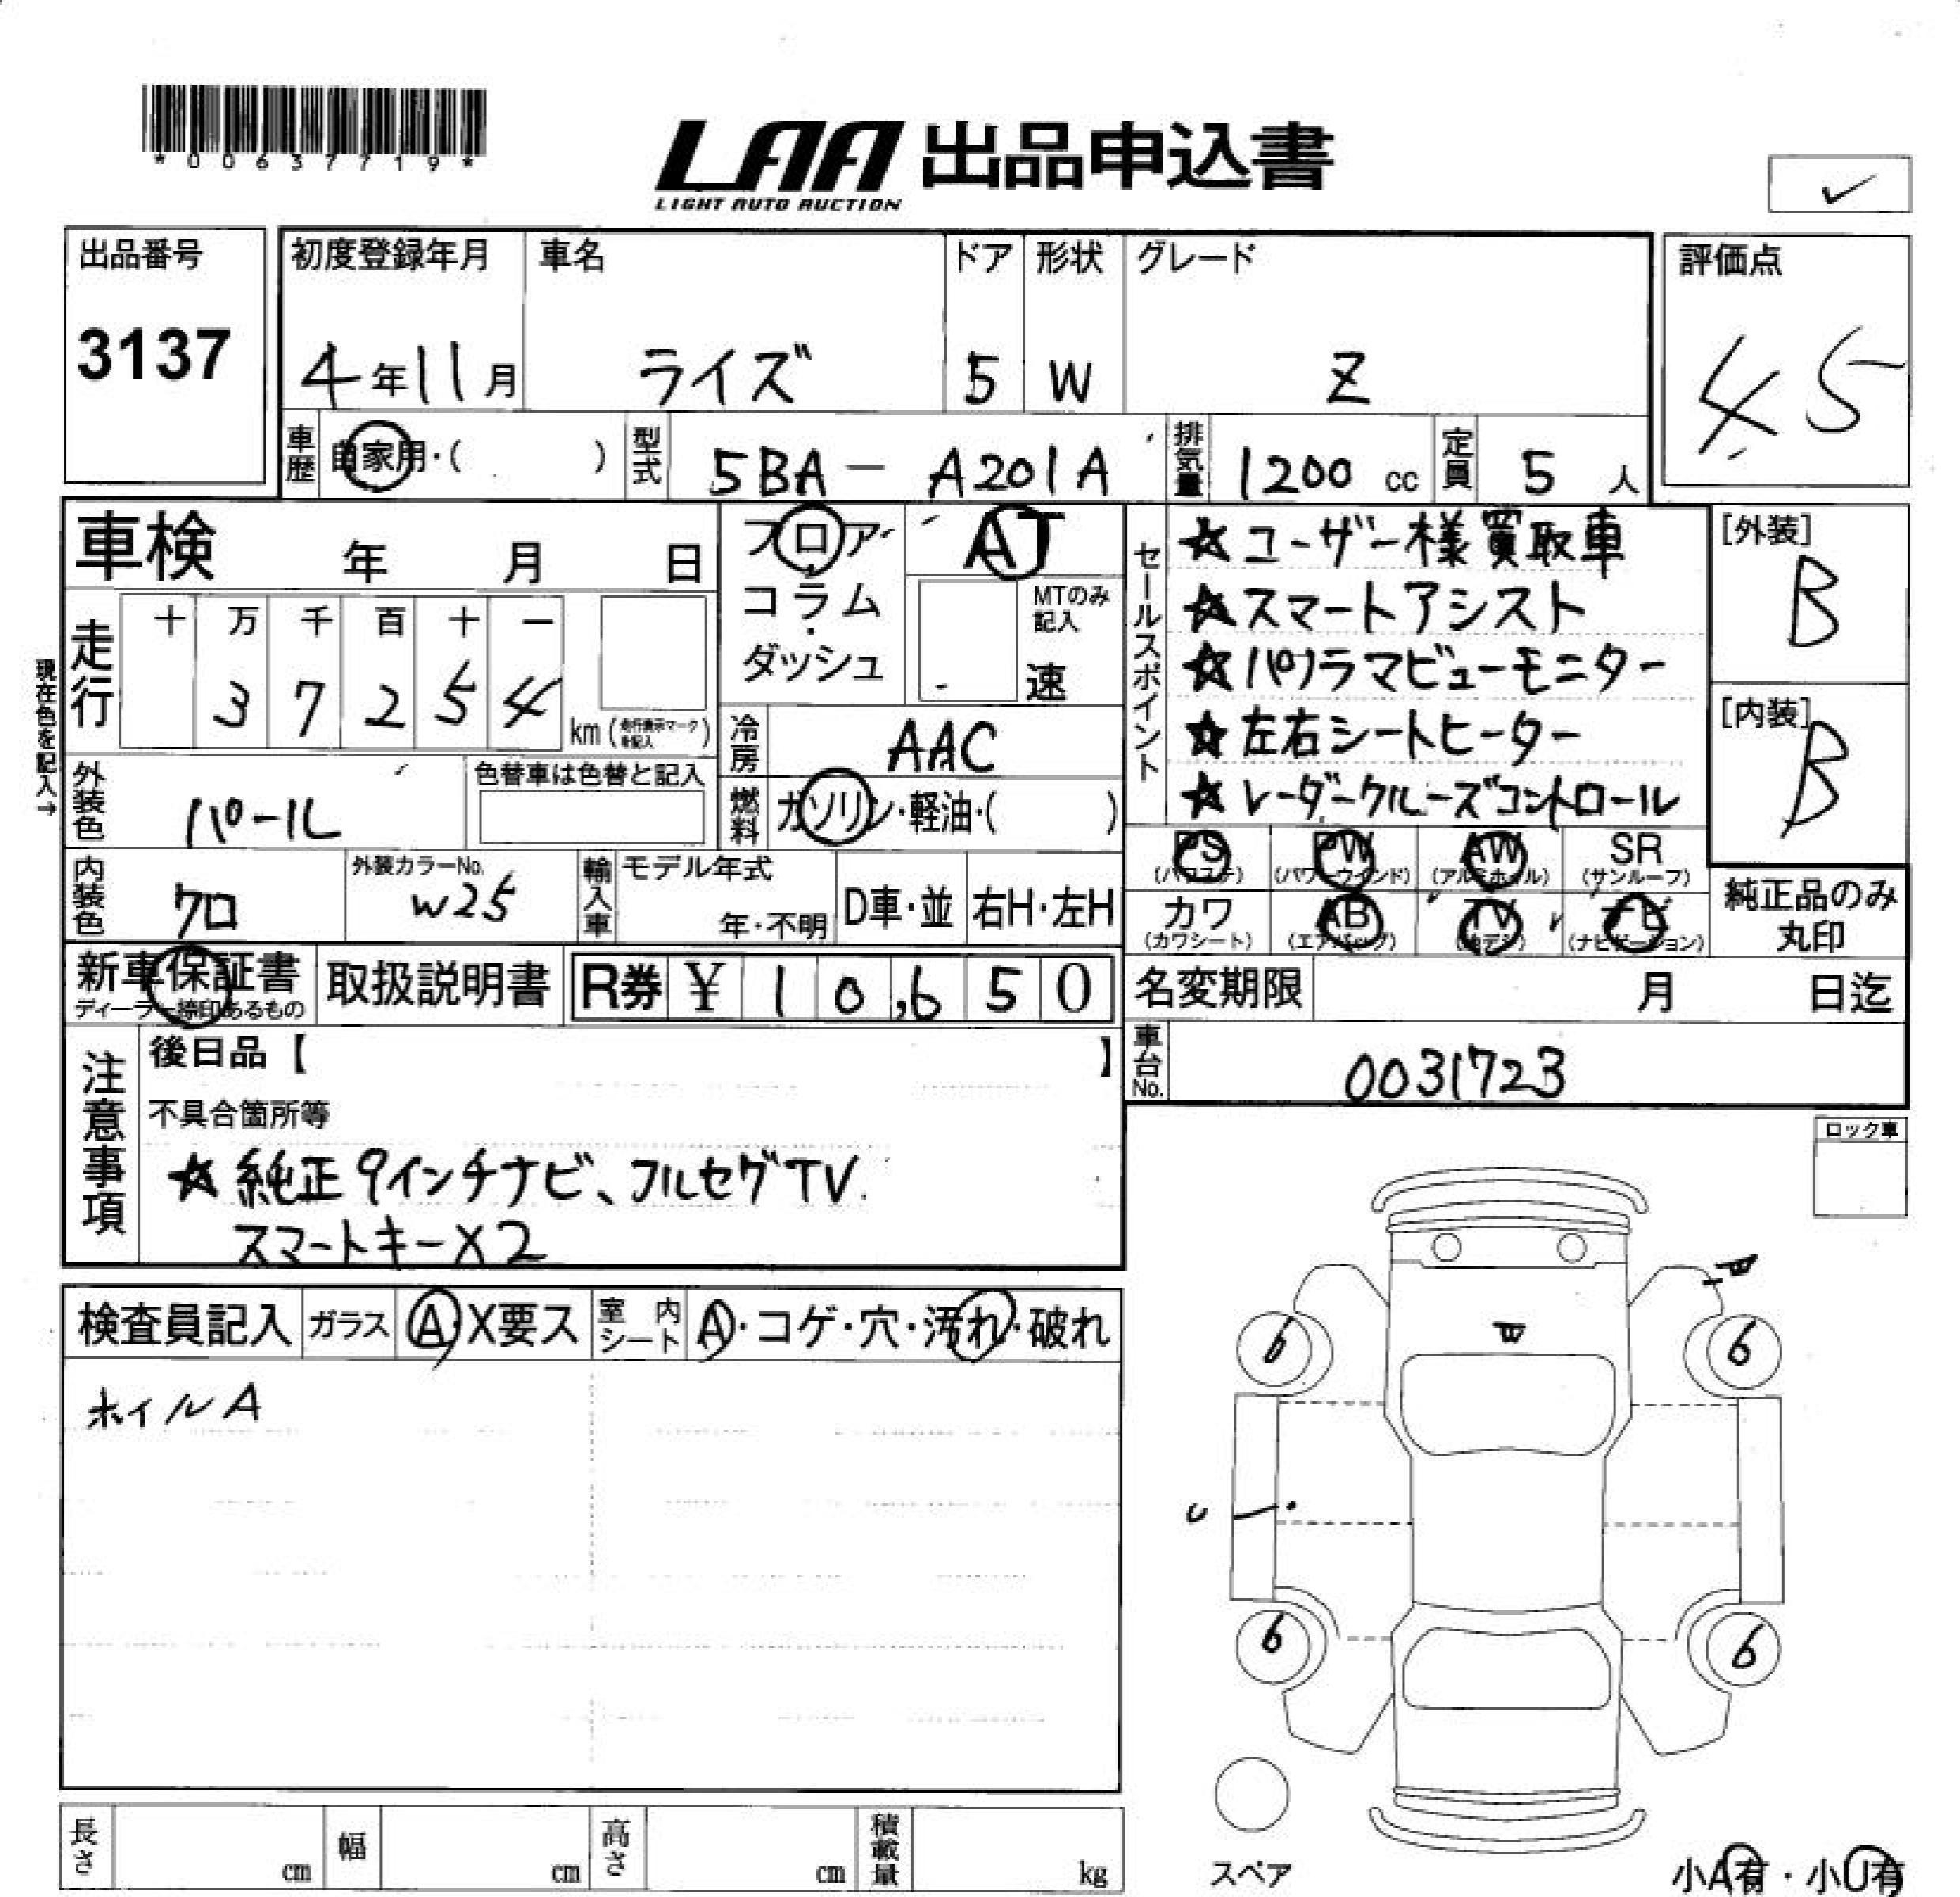 *00637719*
LAA 出品申込書
LIGHT AUTO AUCTION
出品番号
3137
初度登録年月
4年11月
車名
ライズ
ドア
5
形状
W
グレード
Z
評価点
4.5
車歴 自家用・( )
型式 5BA - A201A
排気量 1200 cc
定員 5 人
車検 年 月 日
フロア・
コラム・
ダッシュ
AT
MTのみ記入
速
現在色を記入→
走行
十 万 千 百 十 一
3 7 2 5 4
km (走行表示マークを記入)
冷房 AAC
燃料 ガソリン・軽油・( )
外装色 パール
色替車は色替と記入
内装色 クロ
外装カラーNo. W25
輸入車
モデル年式
年・不明
D車・並
右H・左H
セールスポイント
☆ユーザー様買取車
☆スマートアシスト
☆パノラマビューモニター
☆左右シートヒーター
☆レーダークルーズコントロール
[外装]
B
[内装]
B
PS (パワステ)
PW (パワーウインド)
AW (アルミホイル)
SR (サンルーフ)
カワ (カワシート)
AB (エアバッグ)
TV (地デジ)
ナビ (ナビゲーション)
純正品のみ
丸印
新車保証書
ディーラー捺印あるもの
取扱説明書
R券 ¥ 10,650
名変期限 月 日迄
車台No. 0031723
注意事項
後日品【 】
不具合箇所等
☆純正9インチナビ、フルセグTV.
スマートキー×2
ロック車
検査員記入
ガラス A・X要ス
室内シート A・コゲ・穴・汚れ・破れ
ホイルA
W
W
6
6
U
6
6
スペア
長さ cm
幅 cm
高さ cm
積載量 kg
小A有・小U有